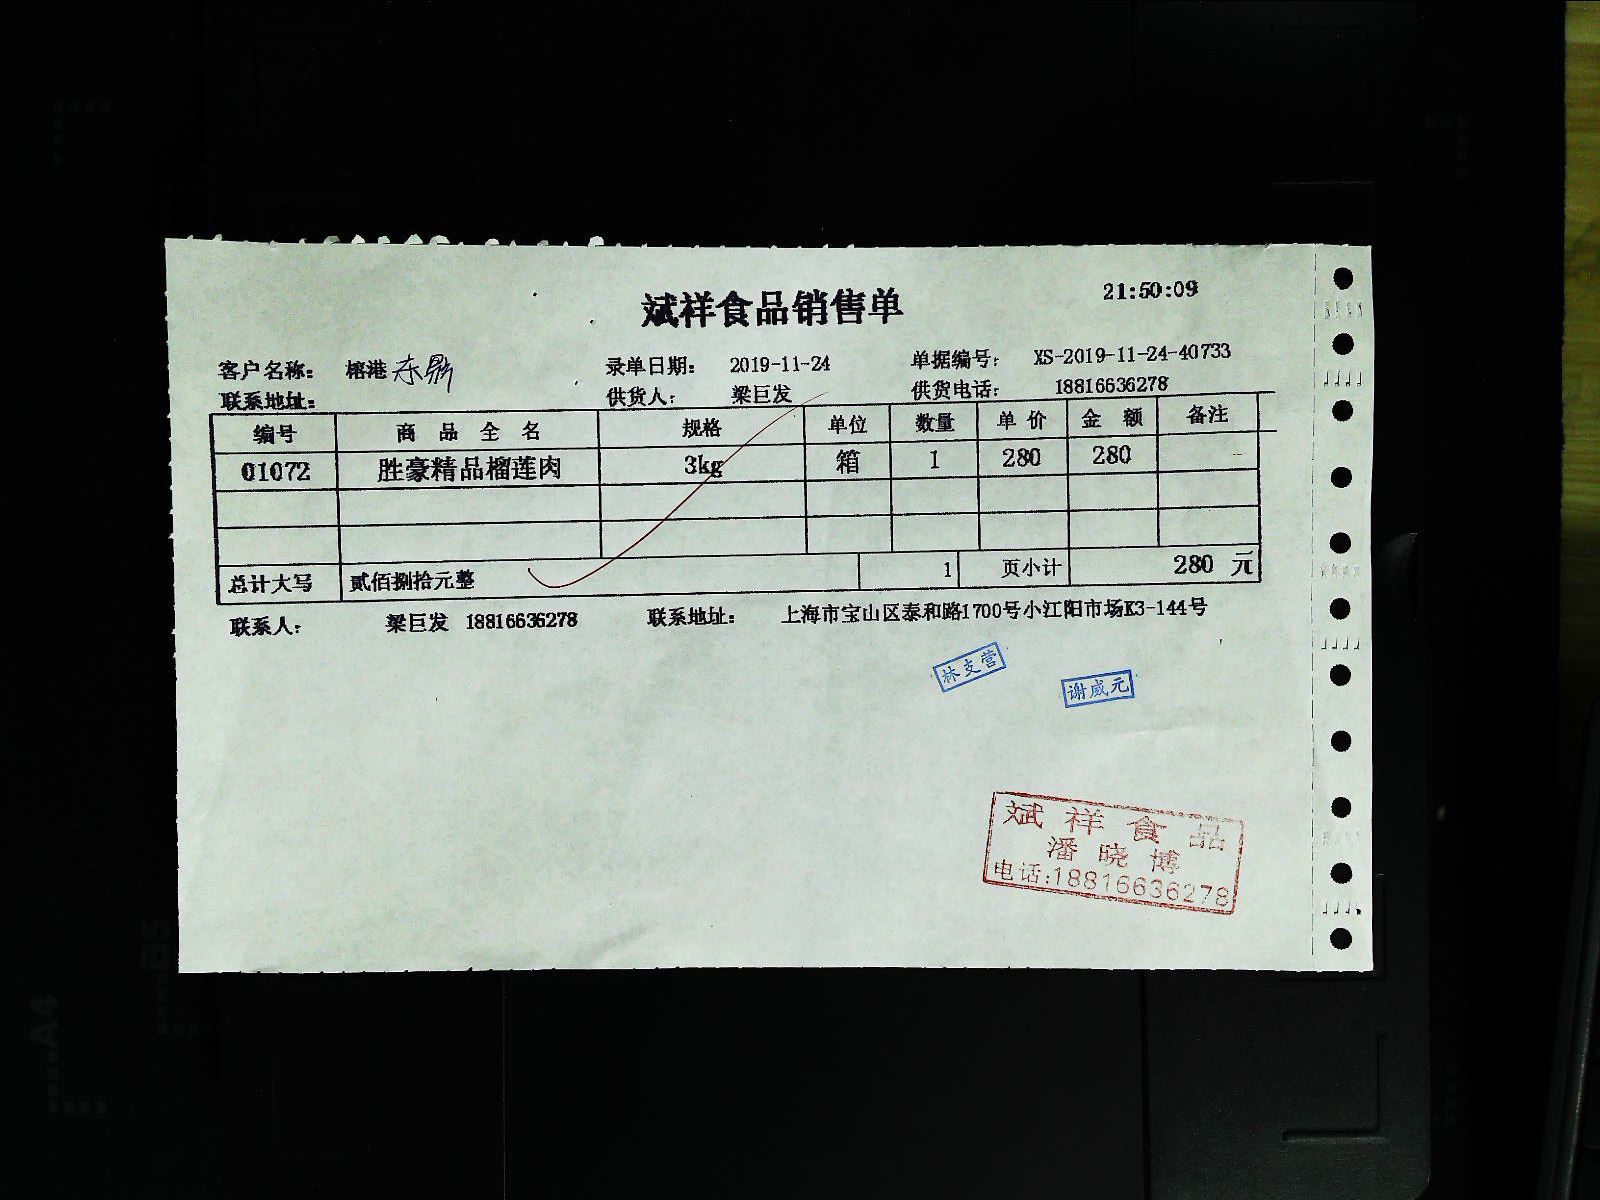 斌祥食品销售单
21:50:09
客户名称: 榕港 东鼎 录单日期: 2019-11-24 单据编号: XS-2019-11-24-40733
联系地址: 供货人: 梁巨发 供货电话: 18816636278
编号 商品全名 规格 单位 数量 单价 金额 备注
01072 胜豪精品榴莲肉 3kg 箱 1 280 280
总计大写 贰佰捌拾元整 1 页小计 280 元
联系人: 梁巨发 18816636278 联系地址: 上海市宝山区泰和路1700号小江阳市场K3-144号
林支营
谢威元
斌祥食品
潘晓博
电话:18816636278
B5
A4